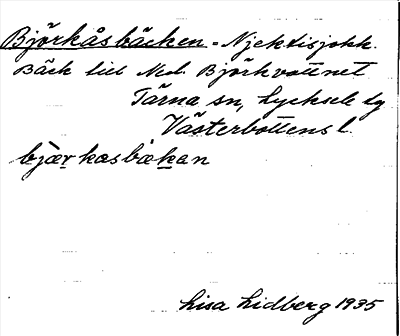 Björkåsbäcken - Njektisjokk.
Bäck till Ned. Björkvattnet
Tärna sn, Lycksele lg
Västerbottens l.
bjær kasbækan
Lisa Lidberg 1935